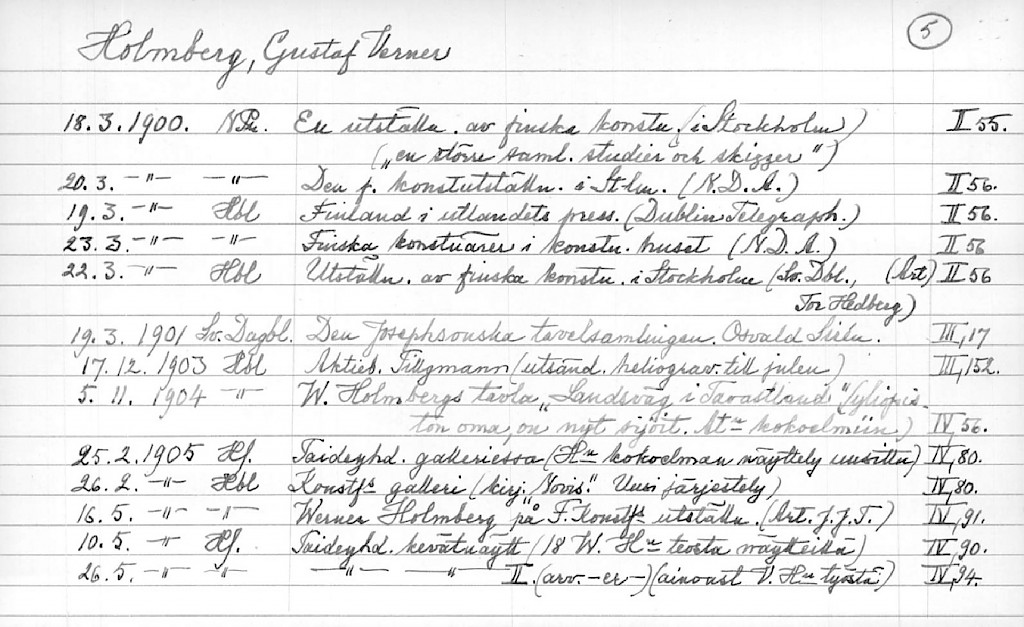 5
Holmberg, Gustaf Verner
18.3.1900. N.Pr. En utställn. av finska konstn. (i Stockholm) II 55.
("en större saml. studier och skizzer")
20.3. -"- -"- Den f. konstutställn. i St-lm. (N.D.A.) II 56.
19.3. -"- Hbl Finland i utlandets press. (Dublin Telegraph.) II 56.
23.3. -"- -"- Finska konstnärer i konstn. huset (N.D.A.) II 56
22.3. -"- Hbl Utställn. av finska konstn. i Stockholm (Sv. Dbl., (Art) II 56
Tor Hedberg)
19.3. 1901 Sv. Dagbl. Den Josephsonska tavelsamlingen. Osvald Sirén. III, 17
17.12. 1903 Hbl Aktieb. Tillgmann (utsänd. heliograv. till julen) III, 152.
5. 11. 1904 -"- W. Holmbergs tavla "Landsväg i Tavastland" (yliopis-
ton oma, on nyt sijoit. At:n kokoelmiin) IV, 56.
25.2.1905 Hf. Taideyhd. galleriessa (H:n kokoelman näyttely uusittu) IV, 80.
26.2. -"- Hbl Konstf:s galleri (kirj. "Novis." Uusi järjestely) IV, 80.
16.5. -"- -"- Werner Holmberg på F. Konstf:s utställn. (Art. J.J.T.) IV, 91.
10.5. -"- Hf. Taideyhd. kevätnäytt (18 W. H:n teosta näytteillä) IV, 90.
26.5. -"- -"- -"- -"- II. (arv. -er-) (ainoast V. H:n työstä) IV, 94.